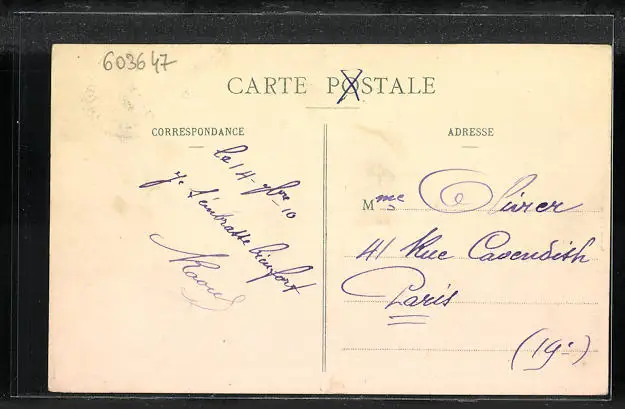 603647
CARTE POSTALE
CORRESPONDANCE
ADRESSE
le 14 - 7bre 10
Je t'embrasse bien fort
Raoul
Mme Olivier
41 Rue Cavendish
Paris
(19e)